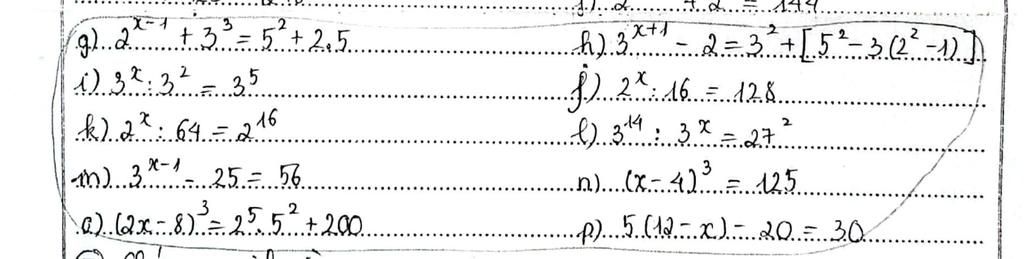 g) 2^(x-1) + 3³ = 5² + 2.5 h) 3^(x+1) - 2 = 3² + [5² - 3(2² - 1)]
i) 3^x : 3² = 3⁵ j) 2^x : 16 = 128
k) 2^x : 64 = 2^16 l) 3^14 : 3^x = 27²
m) 3^(x-1) - 25 = 56 n) (x - 4)³ = 125
o) (2x - 8)³ = 2⁵.5² + 200 p) 5(12 - x) - 20 = 30